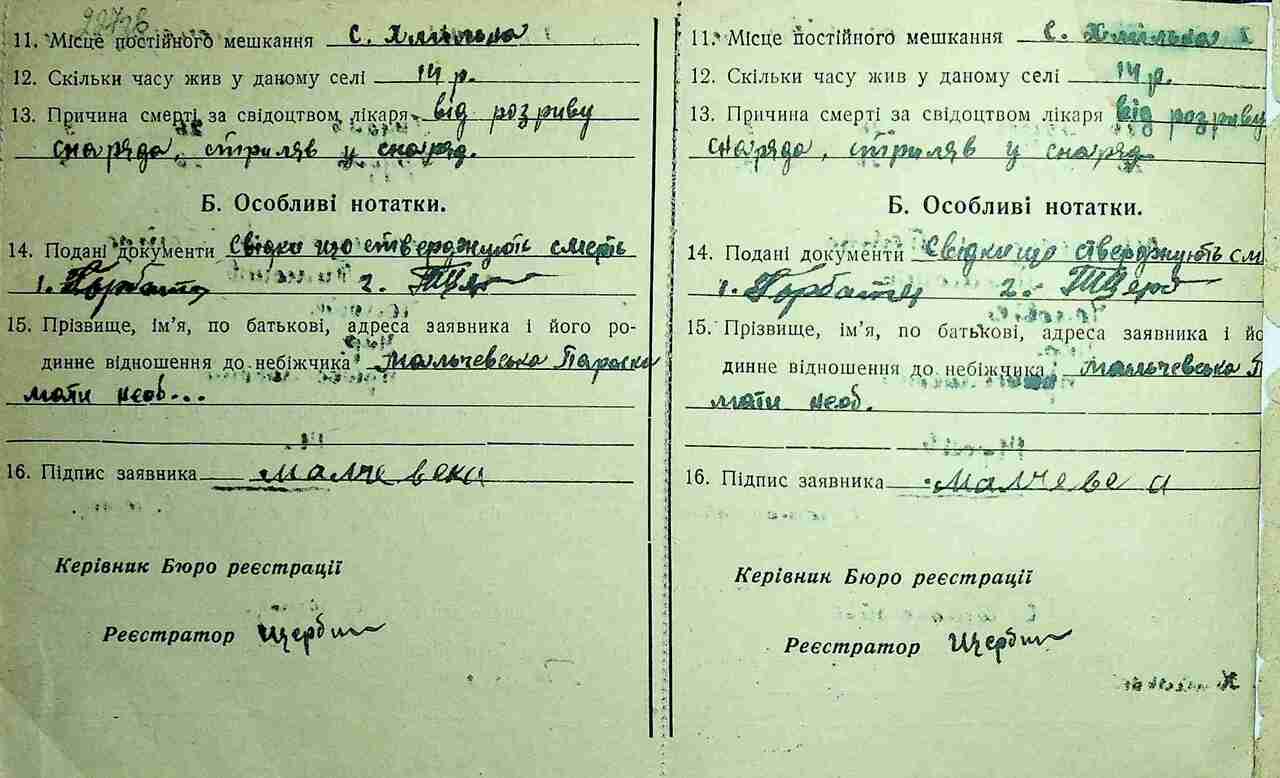 11. Місце постійного мешкання с. Хмільна
12. Скільки часу жив у даному селі 14 р.
13. Причина смерті за свідоцтвом лікаря від розриву
снаряда, стриляв у снаряд.
Б. Особливі нотатки.
14. Подані документи Свідки що стверджують смерть
1. Горбатюк 2.
15. Прізвище, ім'я, по батькові, адреса заявника і його ро-
динне відношення до небіжчика Мальчевська Параска
мати необ...
16. Підпис заявника Малчевска
Керівник Бюро реєстрації
Реєстратор Щербин
11. Місце постійного мешкання с. Хмільна
12. Скільки часу жив у даному селі 14 р.
13. Причина смерті за свідоцтвом лікаря від розриву
снаряда, стриляв у снаряд
Б. Особливі нотатки.
14. Подані документи Свідки що стверджують см
1. Горбатюк 2.
15. Прізвище, ім'я, по батькові, адреса заявника і йо
динне відношення до небіжчика Мальчевська П
мати необ.
16. Підпис заявника
Керівник Бюро реєстрації
Реєстратор Щербин